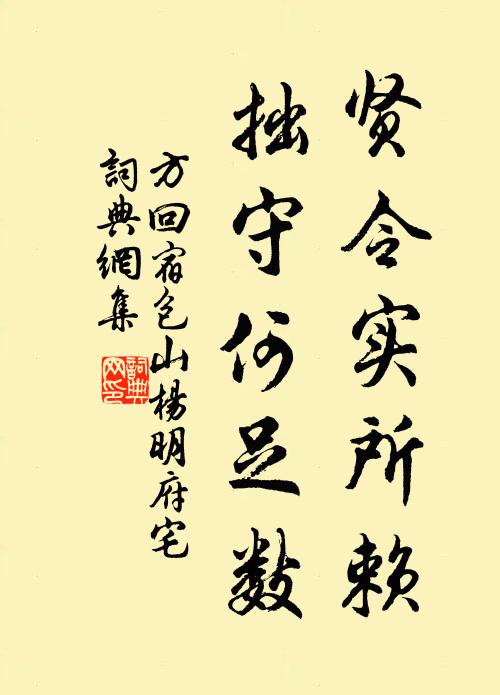 贤令实所赖
拙守何足数
方回宿包山杨明府宅
詞典網集
詞典网印